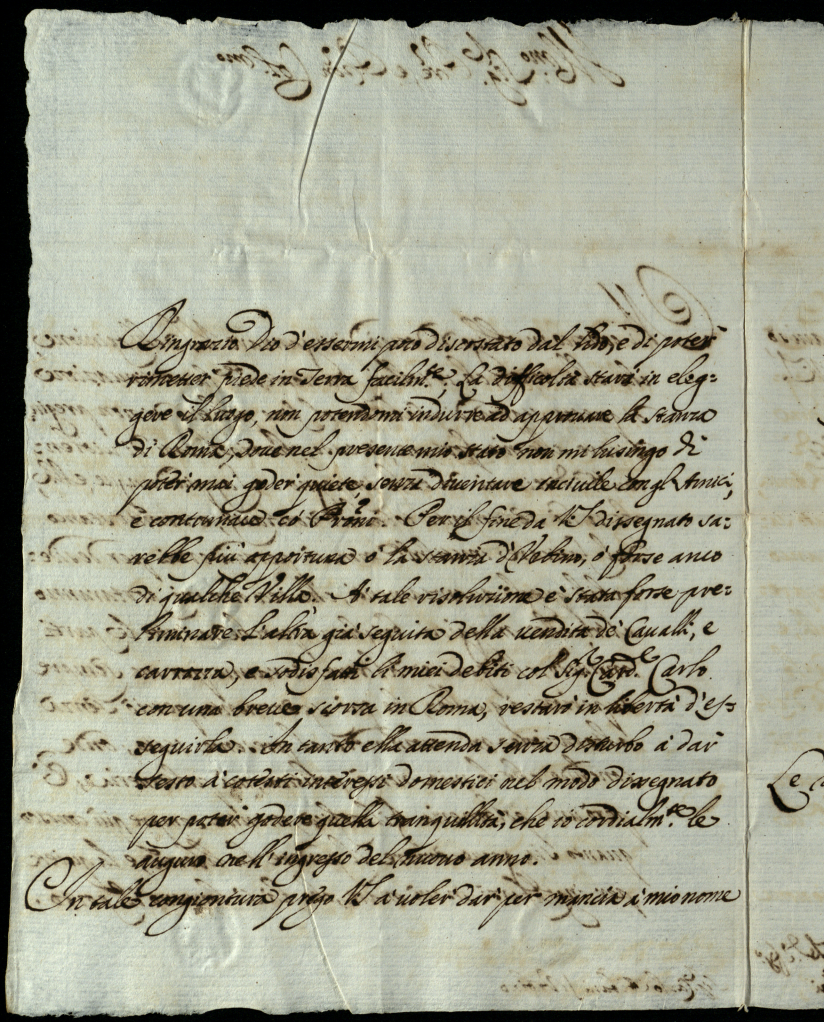 Ringrazio Dio d'essermi poco discostato dal lido, e di poter
rimetter piede in Terra facilm.te, La difficoltà starà in eleg=
gere il luogo, non potendomi indurre ad approuare la stanza
di Roma, doue nel presente mio stato non mi lusingo di
poter mai goder quiete, senza diuentare inciuile con gl'Amici,
e contumace có Proni. Per il fine da VS dissegnato sa=
rebbe più opportuna ó la stanza d'Vrbino, ó forse anco
di qualche Villa. A' tale risoluzione è stata forse pre=
liminare l'altra già seguita della uendita de' Caualli, e
carrozza, e sodisfatti li miei debiti col Sig.r Card.le Carlo
con una breue scorsa in Roma, restarò in libertà d'es=
seguirla. In tanto ella attenda senza disturbo à dar
sesto à cotesti interessi domestici nel modo dissegnato
per poter godere quella tranquillità, che io cordialm.te le
auguro nell'ingresso del nuouo anno.
In tale congiontura prego VS à uoler dar per mancia à mio nome